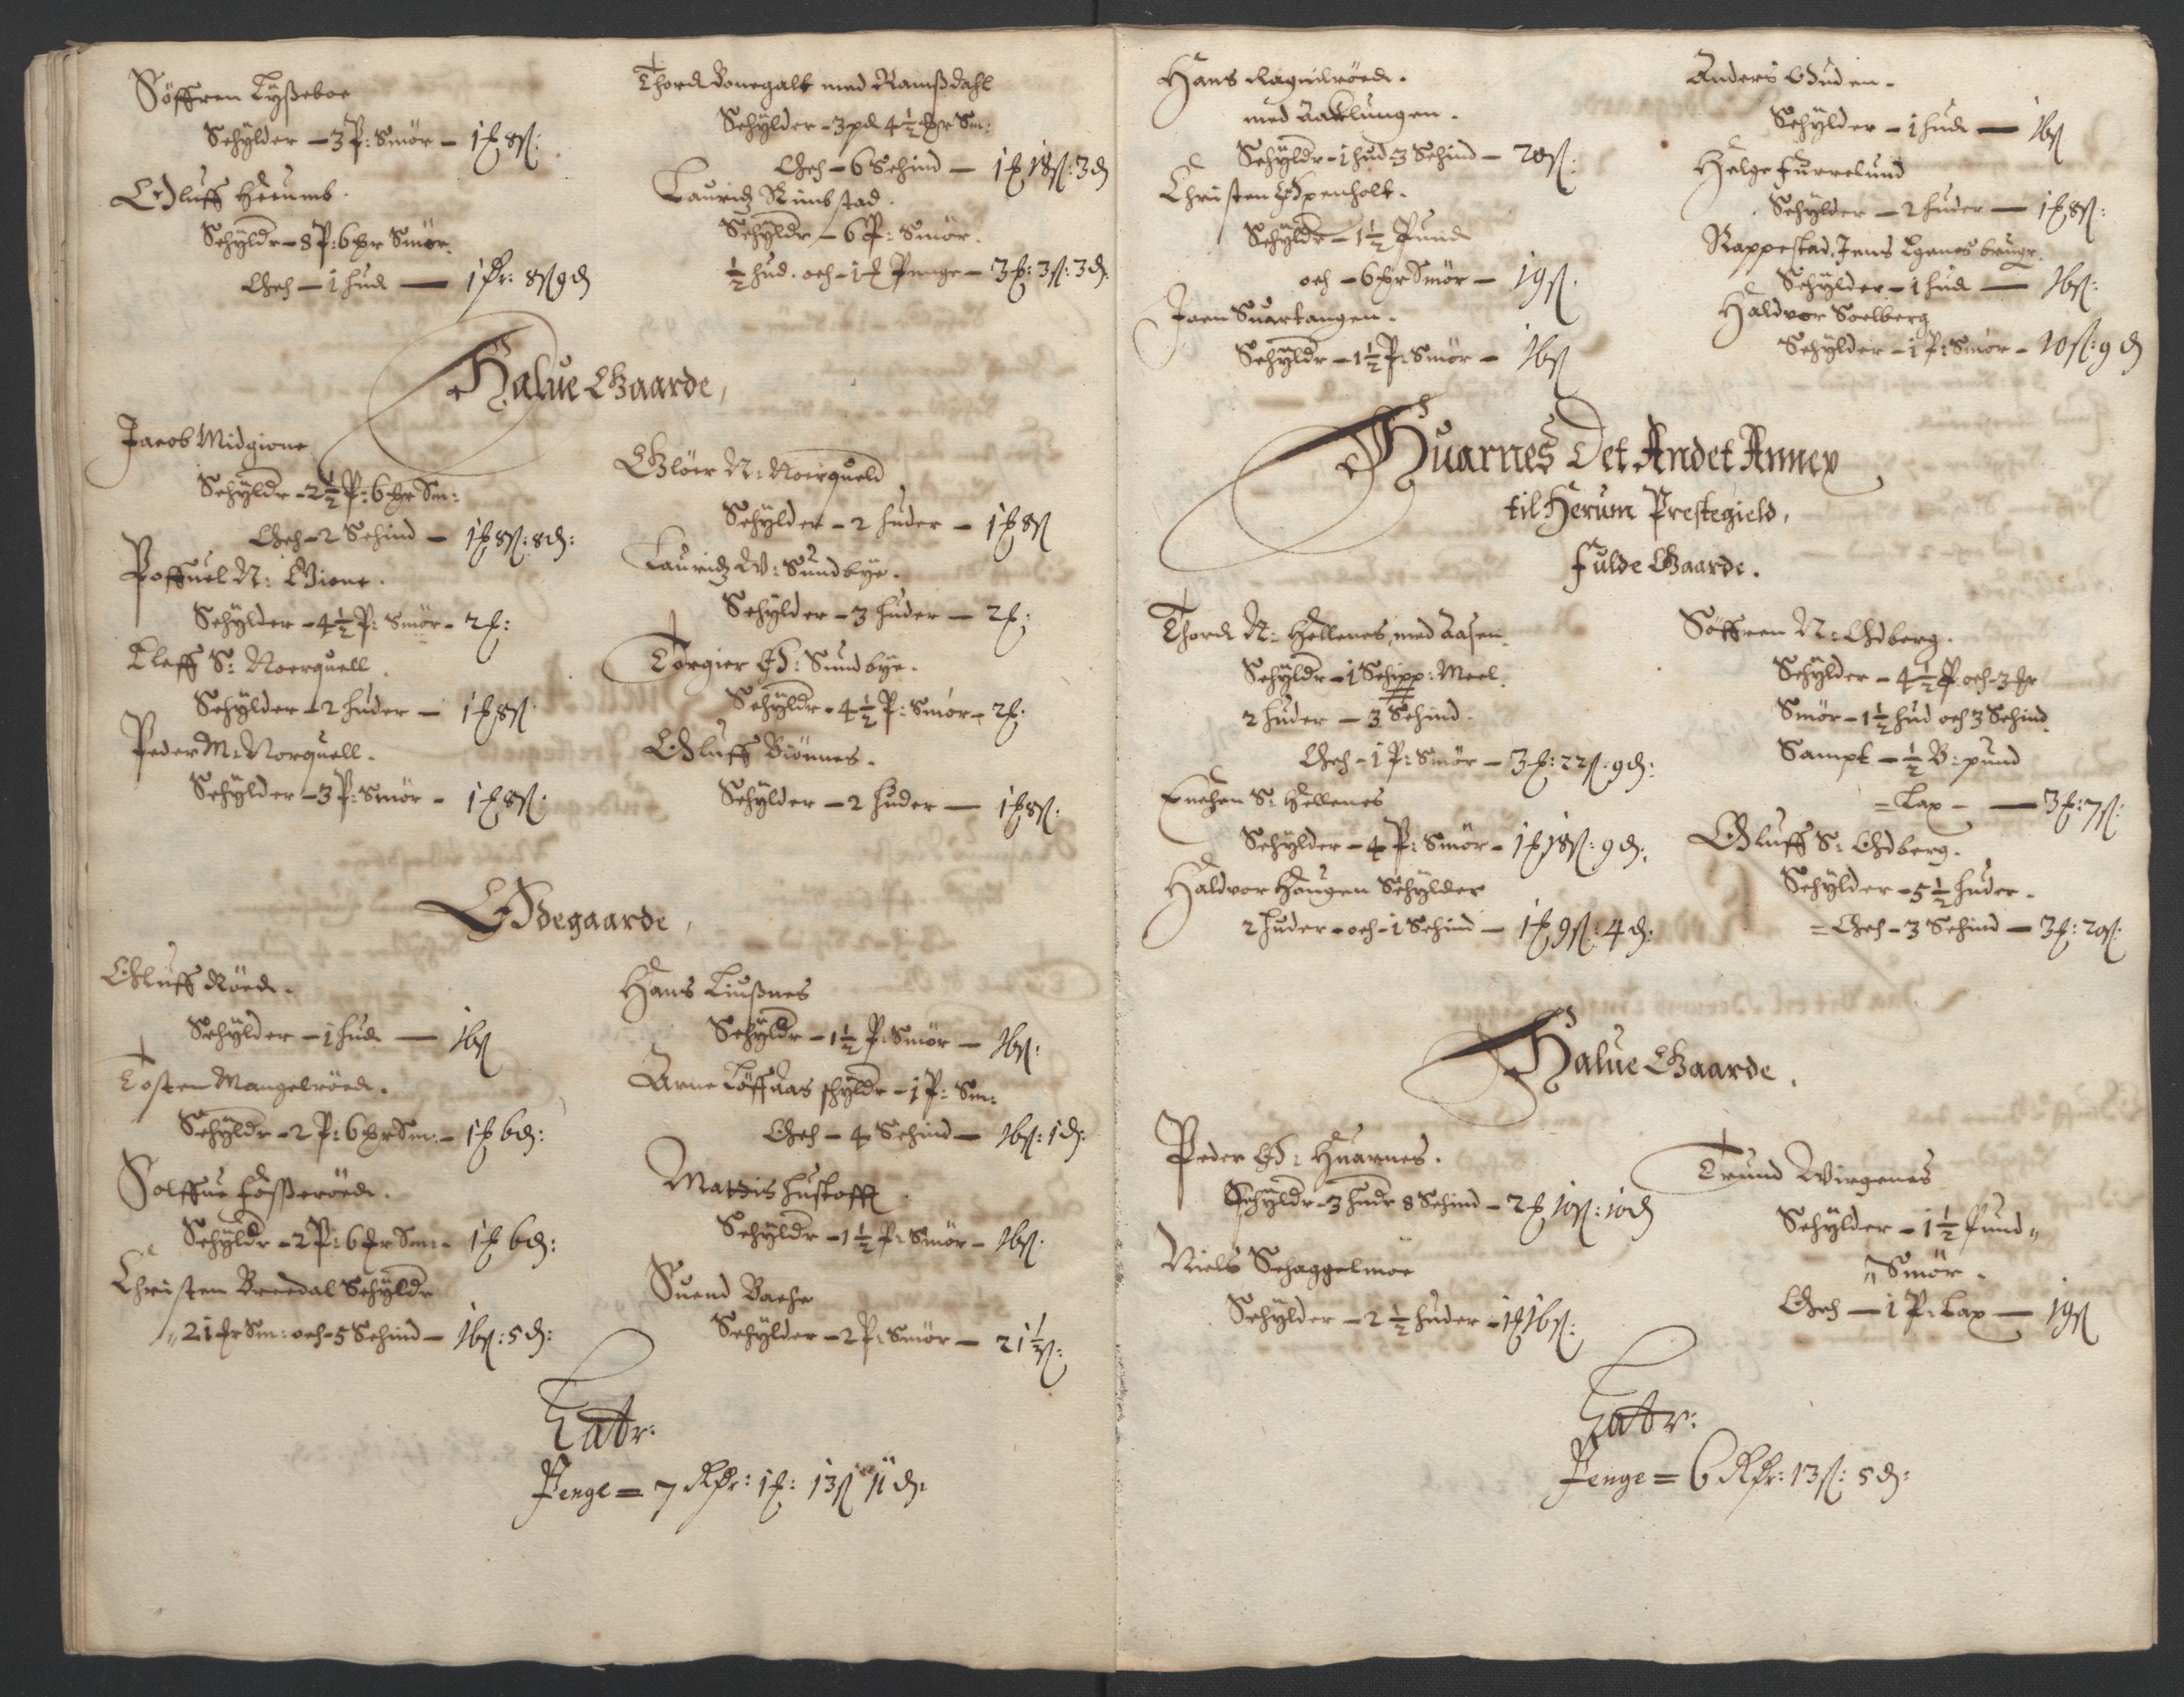 Söffren Lyßeboe
Schÿlder – 3 P: Smör – 1 ꝑ 8 ß:
Oluff Heeumb.
Schÿldr – 8 P: 6 mr Smör.
Och – 1 hud — 1 Rr: 8 ß 9 d
Thord Bonegalt med Ramßdahl
Schÿlder – 3 pd 4½ mr Sm:
Och – 6 Schind — 1 ꝑ 18 ß: 3 d
Lauridz Rimbstad.
Schÿldr – 6 P: Smör.
½ hud. och – 1 ꝑ Penge – 3 ꝑ: 3 ß: 3 d:
Halue Gaarde,
Jacob Midgione
Schÿldr – 2½ P: 6 mr Sm:
Och – 2 Schind – 1 ꝑ 8 ß: 8 d:
Poffuel N: Gione.
Schÿlder – 4½ P: Smör – 2 ꝑ:
Eleff S: Noerquell.
Schÿlder – 2 huder – 1 ꝑ 8 ß:
Peder M: Norquell.
Schÿlder – 3 P: Smör – 1 ꝑ 8 ß:
Glöer N: Noerqueld
Schÿlder – 2 huder – 1 ꝑ 8 ß
Lauridz W: Sundbÿe.
Schÿlder – 3 huder – 2 ꝑ:
Torgier Ø: Sundbÿe.
Schÿldr – 4½ P: Smör – 2 ꝑ:
Oluff Biönnes.
Schÿlder – 2 huder — 1 ꝑ 8 ß:
Ødegaarde,
Oluff Röed.
Schÿlder – 1 hud — 16 ß
Tosten Mangelröed.
Schÿldr – 2 P: 6 mr Sm: – 1 ꝑ 6 d:
Solffue Foßeröed.
Schÿldr – 2 P: 6 mr Sm: – 1 ꝑ 6 d:
Christen Breedal Schÿldr
„ 21 mr Sm: och – 5 Schind – 16 ß: 5 d:
Hans Liußnes
Schÿldr – 1½ P: Smör – 16 ß:
Arne Löffaas schÿldr – 1 P: Sm:
Och – 4 Schind – 16 ß: 1 d:
Mathis Hustofft.
Schÿldr – 1½ P: Smör – 16 ß:
Suend Bache
Schÿlder – 2 P: Smör – 21½ ß:
Latr:
Penge = 7 Rdr: 1 ꝑ: 13 ß 11 d:
Hans Ragnilröed.
med Aaklungen.
Schÿldr – 1 hud 3 Schind – 20 ß:
Christen Espenholt.
Schÿldr – 1½ Pund
och – 6 mr Smör – 19 ß.
Joen Suartangen.
Schÿldr – 1½ P: Smör – 16 ß
Anders Guden.
Schÿlder – 1 hud — 16 ß
Helge Furrelund
Schÿlder – 2 huder — 1 ꝑ 8 ß:
Rappestad, Jens Eganes brugr.
Schÿlder – 1 hud — 16 ß:
Haldvor Soelberg
Schÿlder – 1 P: Smör – 10 ß: 9 d
Huarnes Det Andet Annex
til Herum Prestegield,
Fulde Gaarde.
Thord N: Hellenes, med Aasen.
Schÿldr – 1 Schipp: Meel.
2 huder – 3 Schind.
Och – 1 P: Smör – 3 ꝑ: 22 ß: 9 d:
Enchen S: Hellenes
Schÿlder – 4 P: Smör – 1 ꝑ 18 ß: 9 d:
Haldvor Hougen Schÿlder
2 huder – och – 1 Schind – 1 ꝑ 9 ß: 4 d:
Söffren N: Odberg.
Schÿlder – 4½ P och – 3 mr
Smör – 1½ hud och 3 Schind
Sampt – ½ B: pund
= Lax – — 3 ꝑ: 7 ß:
Oluff S: Odberg.
Schÿlder – 5½ huder.
= Och – 3 Schind – 3 ꝑ: 20 ß:
Halue Gaarde.
Peder Ø: Huarnes.
Schÿldr – 3 hudr 8 Schind – 2 ꝑ 10 ß: 10 d
Niels Schaggelmoe
Schÿlder – 2½ huder – 1 ꝑ 16 ß:
Trund Wirgenes
Schÿlder – 1½ Pund „
„ Smör.
Och — 1 P: Lax — 19 ß
Latr:
Penge = 6 Rdr: 13 ß: 5 d: